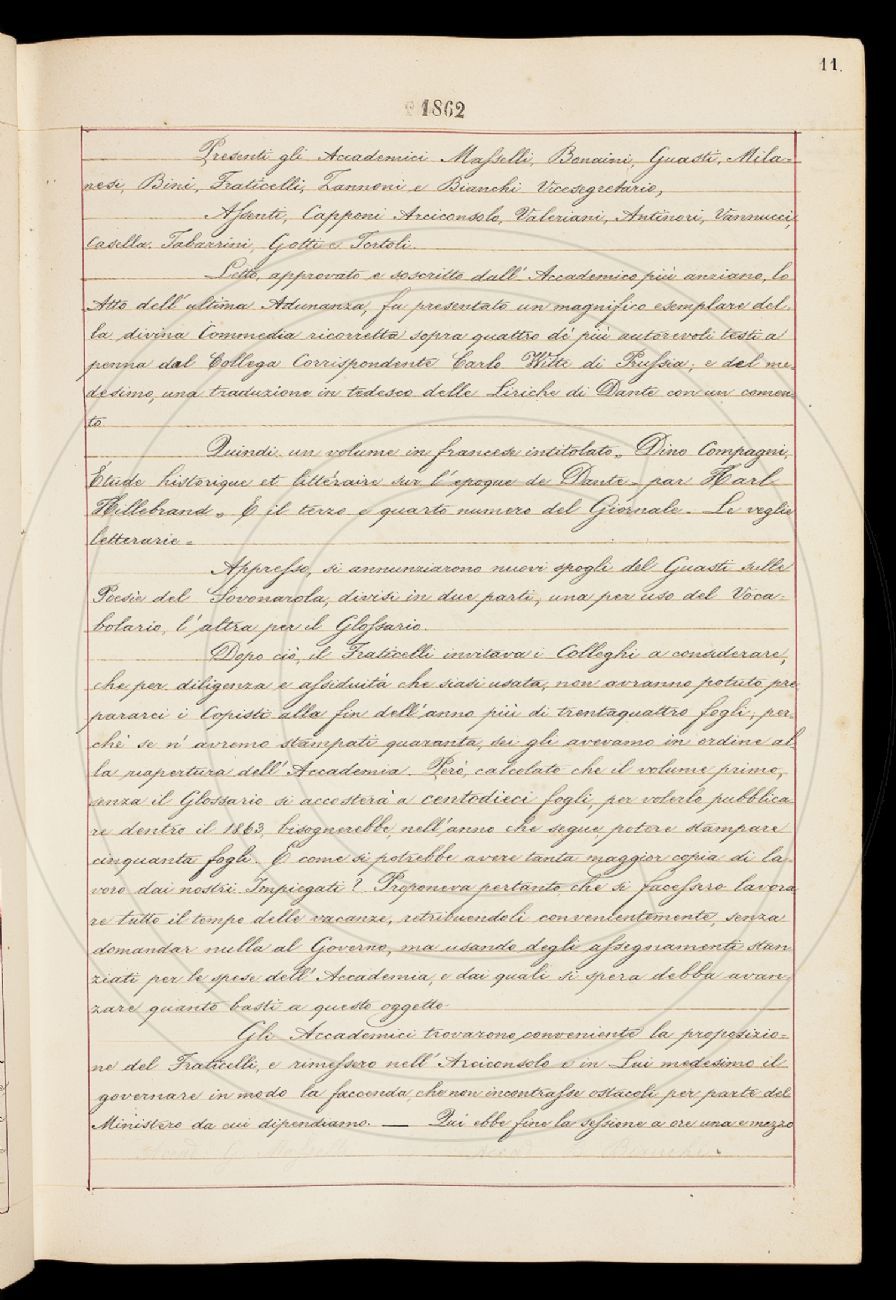 11.
1862
Presenti gli Accademici Masselli, Bonaini, Guasti, Mila=
nesi, Bini, Fraticelli, Zannoni e Bianchi Vicesegretario,
Assenti, Capponi Arciconsolo, Valeriani, Antinori, Vannucci,
Casella, Tabarrini, Gotti e Tortoli.
Letto, approvato e soscritto dall' Accademico più anziano, lo
Atto dell' ultima Adunanza, fu presentato un magnifico esemplare del-
la divina Commedia ricorretta sopra quattro de' più autorevoli testi a
penna dal Collega Corrispondente Carlo Witte di Prussia; e del me-
desimo, una traduzione in tedesco delle Liriche di Dante con un comen-
to
Quindi un volume in francese intitolato „ Dino Compagni,
Étude historique et littéraire sur l' epoque de Dante = par Karl
Hillebrand „ E il terzo e quarto numero del Giornale = Le veglie
letterarie =
Appresso, si annunziarono nuovi spogli del Guasti sulle
Poesie del Sovonarola, divisi in due parti, una per uso del Voca-
bolario, l' altra per il Glossario.
Dopo ciò, il Fraticelli invitava i Colleghi a considerare,
che per diligenza e assiduità che siasi usata, non avranno potuto pre
pararci i Copisti alla fin dell' anno più di trentaquattro fogli; per-
chè se n' avremo stampati quaranta, sei gli avevamo in ordine al-
la riapertura dell' Accademia. Però, calcolato che il volume primo,
senza il Glossario si accosterà a centodieci fogli, per volerlo pubblica
re dentro il 1863, bisognerebbe, nell' anno che segue, potere stampare
cinquanta fogli. E come si potrebbe avere tanta maggior copia di la-
voro dai nostri Impiegati? Proponeva pertanto, che si facessero lavora
re tutto il tempo delle vacanze, retribuendoli convenientemente, senza
domandar nulla al Governo, ma usando degli assegnamenti stan
ziati per le spese dell' Accademia, e dai quali si spera debba avan-
zare quanto basti a questo oggetto
Gli Accademici trovarono conveniente la proposizio=
ne del Fraticelli, e rimessero nell' Arciconsolo e in Lui medesimo il
governare in modo la faccenda, che non incontrasse ostacoli per parte del
Ministero da cui dipendiamo. — Qui ebbe fine la sessione a ore una e mezzo